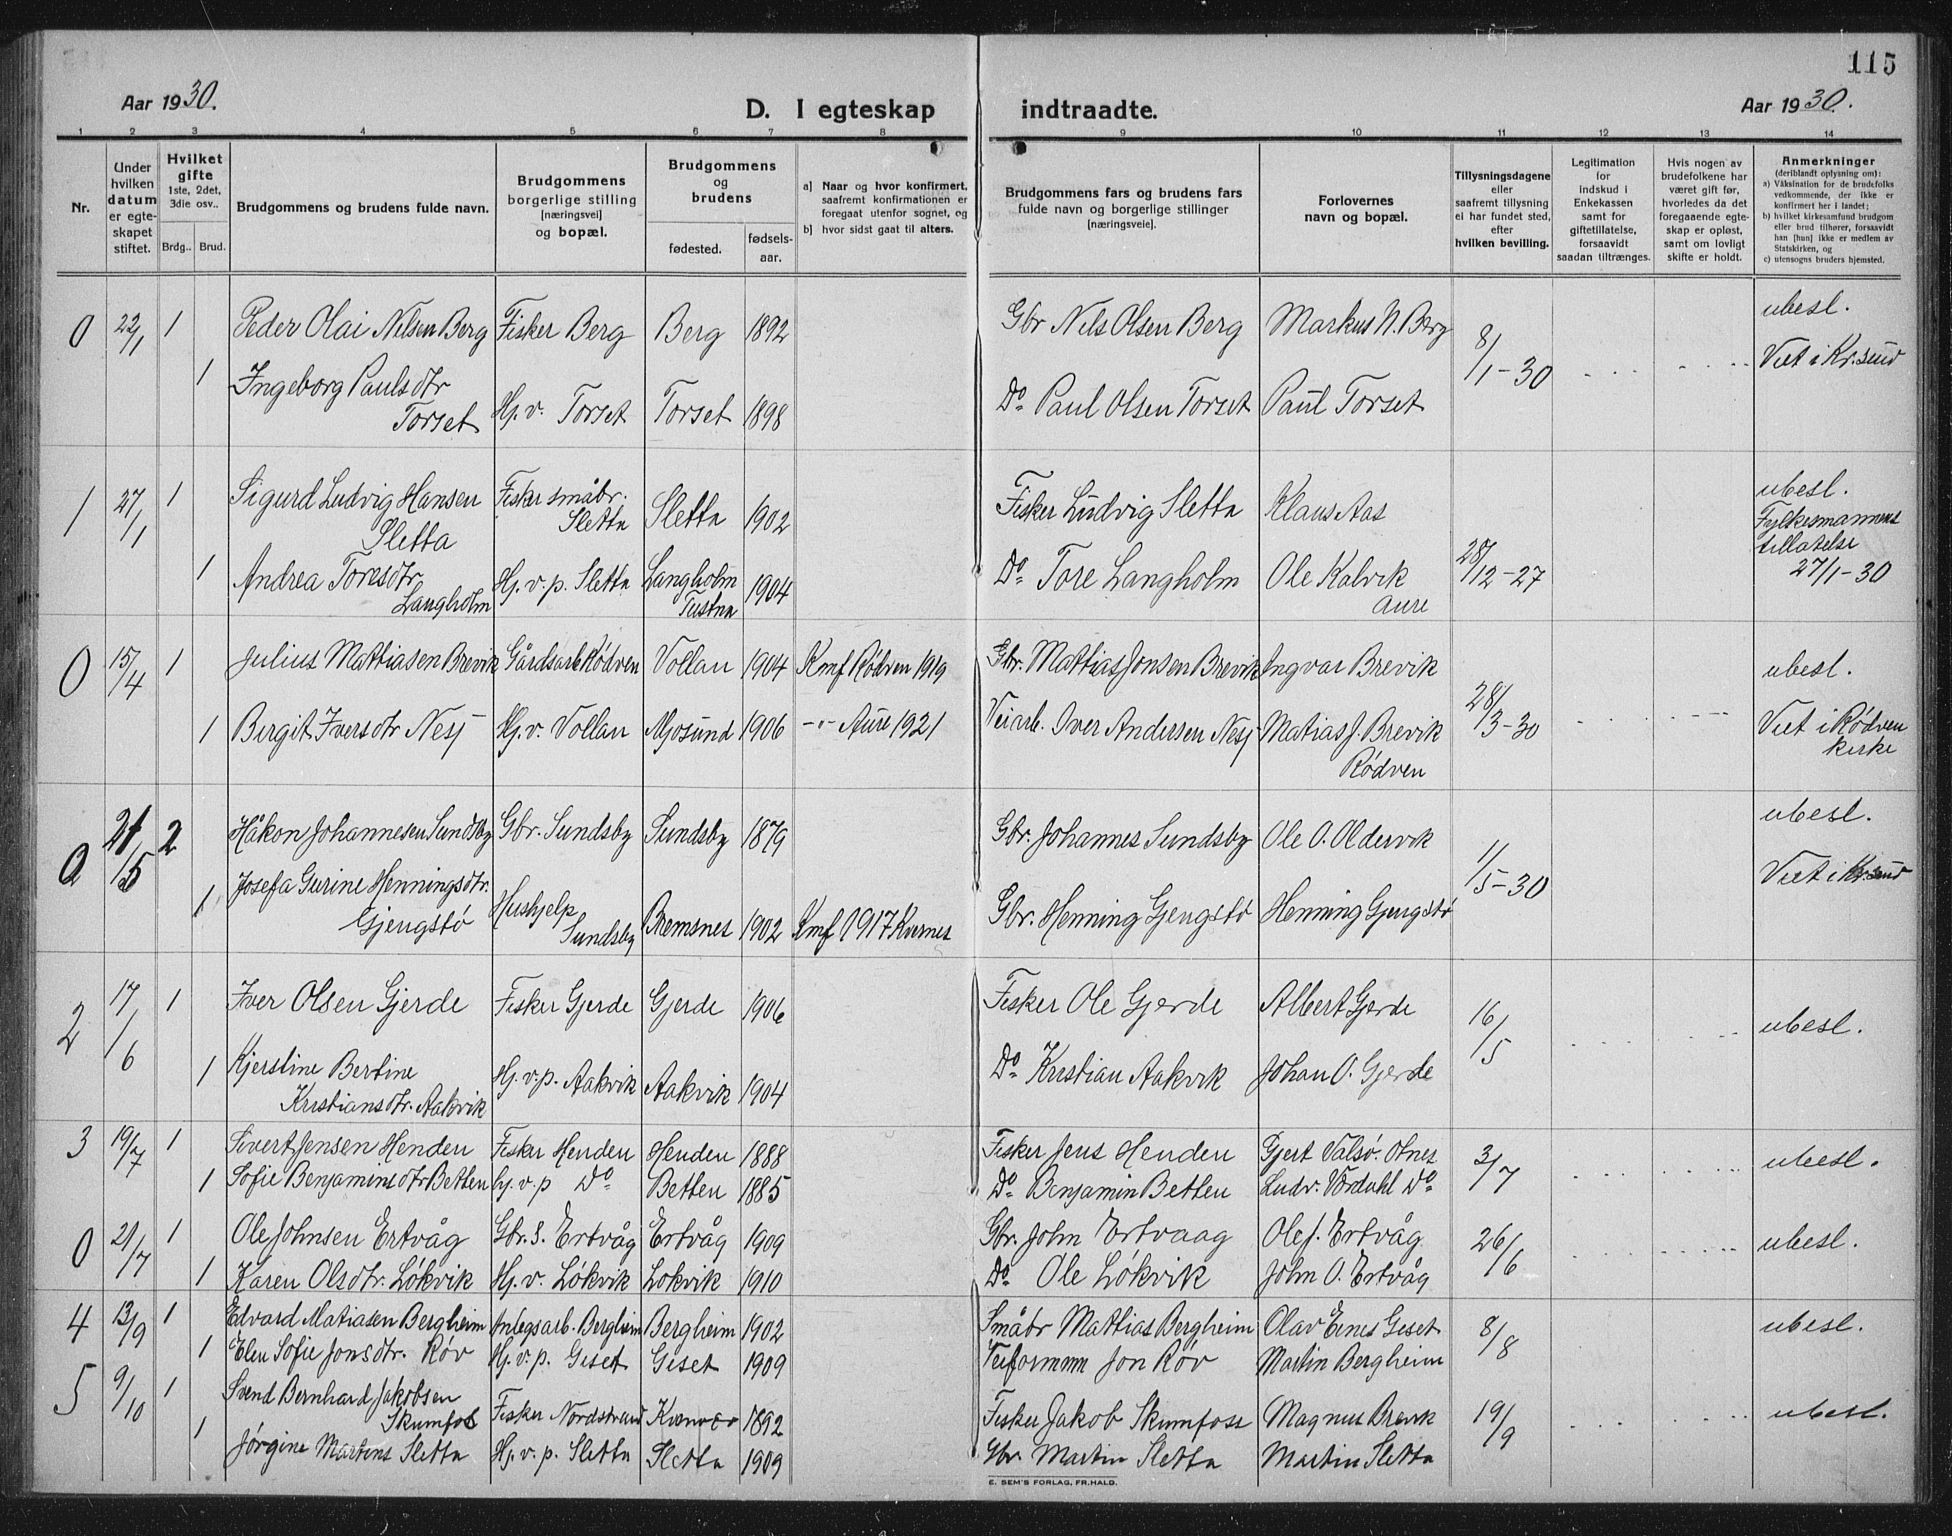 115
Aar 1930.
D. I egteskap indtraadte.
Aar 1930.
1 2 3 4 5 6 7 8 9 10 11 12 13 14
Nr.
Under hvilken datum er egteskapet stiftet.
Hvilket gifte 1ste, 2det, 3die osv..
Brdg.. Brud.
Brudgommens og brudens fulde navn.
Brudgommens borgerlige stilling [næringsvei] og bopæl.
Brudgommens og brudens
fødested. fødselsaar.
a] Naar og hvor konfirmert, saafremt konfirmationen er foregaat utenfor sognet, og
b] hvor sidst gaat til alters.
Brudgommens fars og brudens fars fulde navn og borgerlige stillinger [næringsveie].
Forlovernes navn og bopæl.
Tillysningsdagene eller saafremt tillysning ei har fundet sted, efter hvilken bevilling.
Legitimation for indskud i Enkekassen samt for giftetillatelse, forsaavidt saadan tiltrænges.
Hvis nogen av brudefolkene har været gift før, hvorledes da det foregaaende egteskap er opløst, samt om lovligt skifte er holdt.
Anmerkninger (deriblandt oplysning om):
a) Vaksination for de brudefolks vedkommende, der ikke er konfirmert her i landet;
b) hvilket kirkesamfund brudgom eller brud tilhører, forsaavidt han [hun] ikke er medlem av Statskirken, og
c) utensogns bruders hjemsted.
0 22/1 1 Peder Olai Nilsen Berg Fisker Berg Berg 1892 Gbr Nils Olsen Berg Markus N. Berg 8/1-30 ubesl.
Viet i Kr.sund
1 Ingeborg Paulsdtr Torset Hj. v. Torset Torset 1898 Do Paul Olsen Torset Paul Torset
1 27/1 1 Sigurd Ludvig Hansen Sletta Fisker småbr. Sletta Sletta 1902 Fisker Ludvig Sletta Klaus Aas ubesl.
Fylkesmannens tillatelse 27/1-30
1 Andrea Toresdtr. Langholm Hj. v. p. Sletta Langholm Tustna 1904 Do Tore Langholm Ole Kalvik Aure 28/12-27
0 15/4 1 Julius Mattiasen Brevik Gårdsarb Rødven Vollan 1904 Kmf Rødven 1919 Gbr. Mattias Jonsen Brevik Ingvar Brevik 28/3-30 ubesl.
Viet i Rødven kirke
1 Birgit Iversdtr Nesj Hj. v. Vollan Mjosund 1906 -"- Aure 1921 Veiarb. Iver Andersen Nesj Matias J. Brevik Rødven
0 21/5 2 Håkon Johannesen Sundsby Gbr. Sundsby Sundsby 1879 Gbr. Johannes Sundsby Ole O. Oldervik 1/5-30 ubesl.
Viet i Kr.sund
1 Josefa Gurine Henningsdtr. Gjengstø Hushjelp Sundsby Bremsnes 1902 Kmf 1917 Kvernes Gbr. Henning Gjengstø Henning Gjengstø
2 17/6 1 Iver Olsen Gjerde Fisker Gjerde Gjerde 1906 Fisker Ole Gjerde Albert Gjerde 16/5 ubesl.
1 Kjerstine Bertine Kristiansdtr. Aakvik Hj. v. p. Aakvik Aakvik 1904 Do Kristian Aakvik Johan O. Gjerde
3 19/7 1 Sivert Jensen Henden Fisker Henden Henden 1888 Fisker Jens Henden Gjert Valsø. Otnes 3/7 ubesl.
1 Sofie Benjaminsdtr Betten hj. v. p Do Betten 1885 Do Benjamin Betten Ludv. Vordahl Do
0 21/7 1 Ole Johnsen Ertvåg Gbr. S. Ertvåg Ertvåg 1909 Gbr. John Ertvaag Ole J. Ertvåg 26/6 ubesl.
1 Karen Olsdtr. Løkvik Hj. v. Løkvik Løkvik 1910 Do Ole Løkvik John O. Ertvåg
4 13/9 1 Edvard Matiasen Bergheim Anlegsarb. Bergheim Bergheim 1902 Småbr Mattias Bergheim Olav Geset 8/8 ubesl.
1 Elen Sofie Jonsdtr. Røv Hj. v. p. Giset Giset 1909 Veiformann Jon Røv Martin Bergheim
5 9/10 1 Svend Bernhard Jakobsen Skumfos Fisker Nordstrand Kvenvær 1892 Fisker Jakob Skumfoss Magnus Brevik 19/9 ubesl.
1 Jørgine Martins Sletta Hj. v. p. Sletta Sletta 1909 Gbr Martin Sletta Martin Sletta
E. SEM'S FORLAG, FR.HALD.